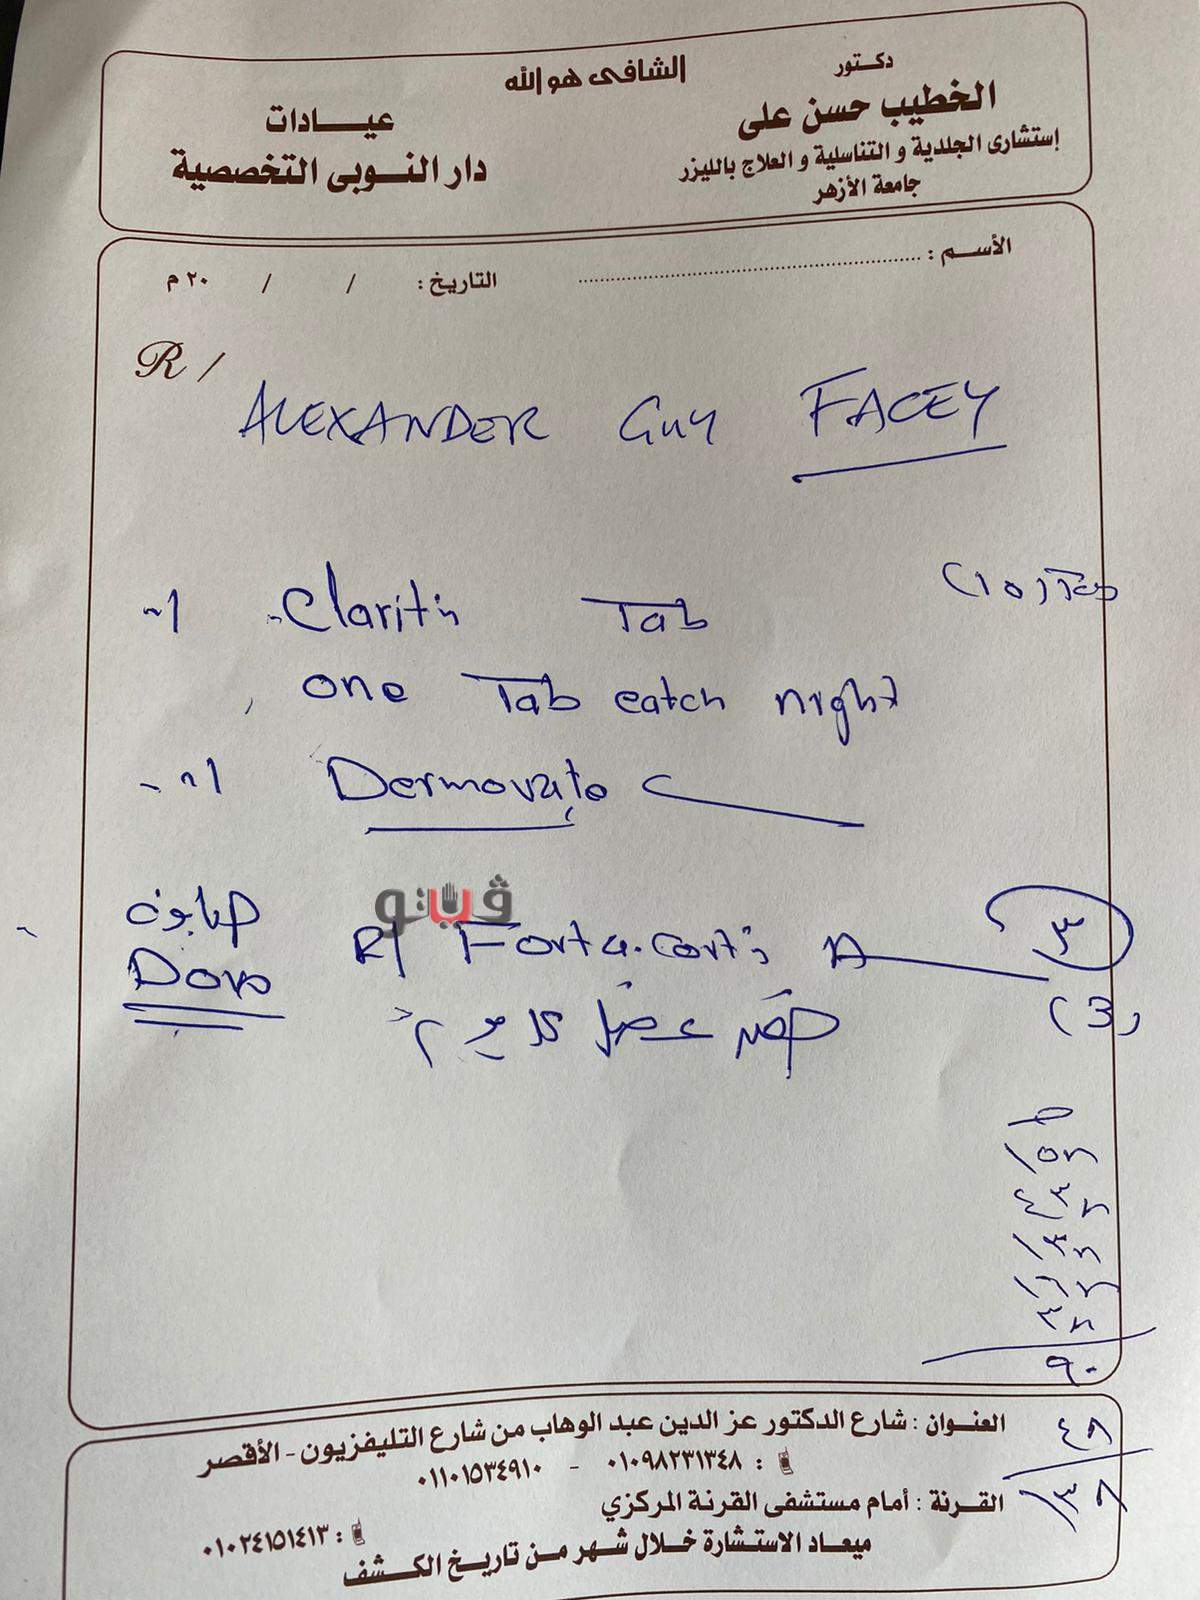 الشافى هو الله
دكتور
الخطيب حسن على
إستشارى الجلدية و التناسلية و العلاج بالليزر
جامعة الأزهر
عيادات
دار النوبى التخصصية
الأسم :
التاريخ : / / ٢٠ م
R /
ALEXANDER Guy FACEY
Claritin Tab (10) Tab
one Tab eatch night
Dermovate
صابون
Dove
ڤيتو
R/ Forta.cortin A
(3)
حقن عضل كل يوم
٩٠
٤٨
١٣٨
العنوان : شارع الدكتور عز الدين عبد الوهاب من شارع التليفزيون - الأقصر
: ٠١٠٩٨٢٣١٣٤٨ - ٠١١٠١٥٣٤٩١٠
القرنة : أمام مستشفى القرنة المركزي
: ٠١٠٢٤١٥١٤١٣
ميعاد الاستشارة خلال شهر من تاريخ الكشف